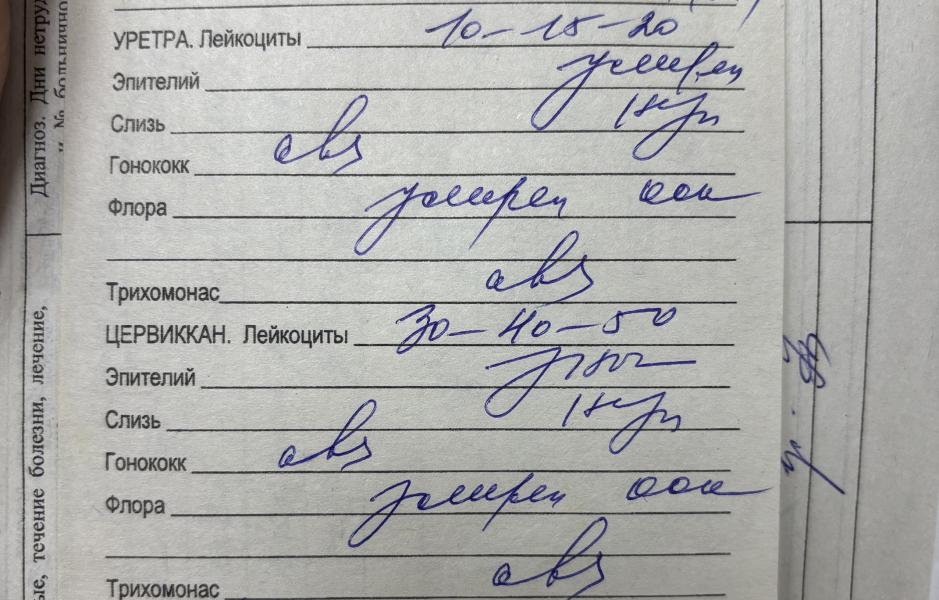 УРЕТРА. Лейкоциты 10-15-20
Эпителий умерен
Слизь
Гонококк abs
Флора умерен кок
Трихомонас abs
ЦЕРВИККАН. Лейкоциты 30-40-50
Эпителий
Слизь
Гонококк abs
Флора умерен кок
Трихомонас abs
Диагноз. Дни нетруд
и № больнично
ые, течение болезни, лечение,